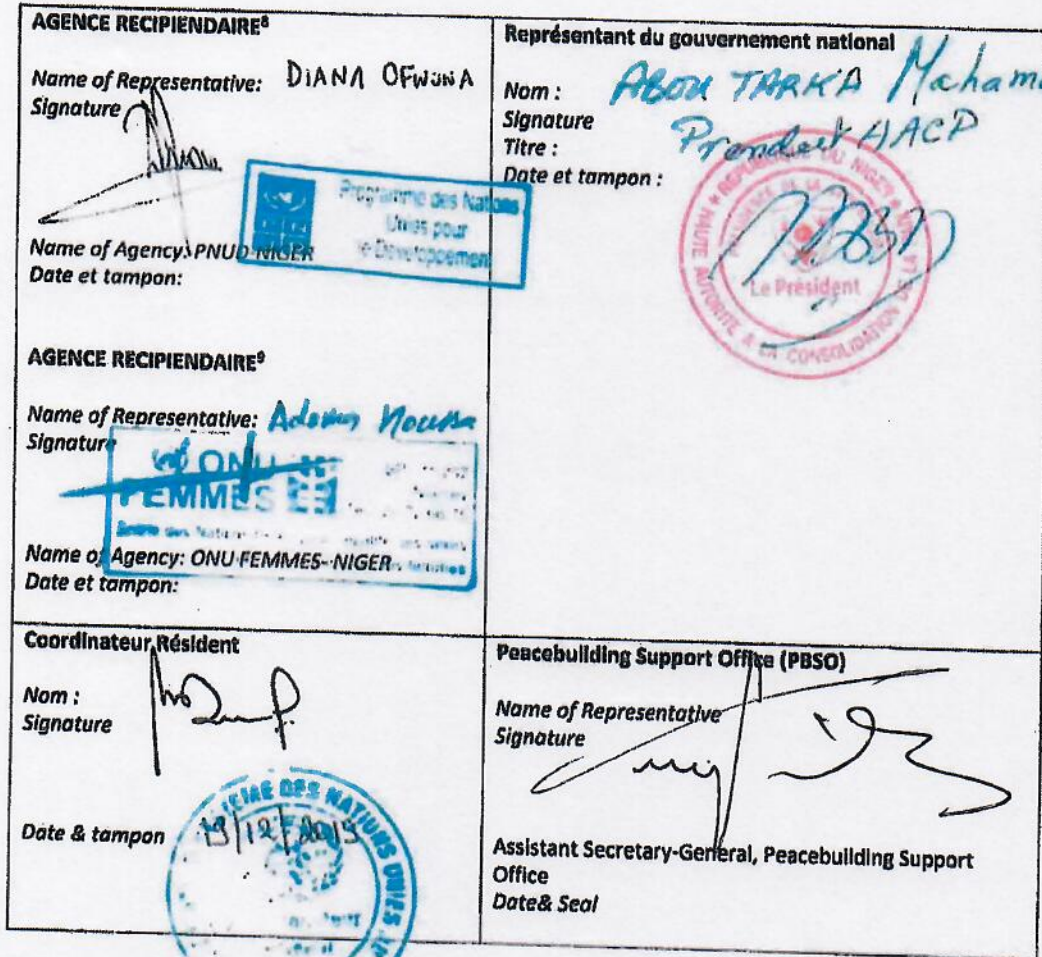 AGENCE RECIPIENDAIRE⁸
Name of Representative: DIANA OFWONA
Signature
Programme des Nations
Unies pour
le Développement
Name of Agency: PNUD-NIGER
Date et tampon:
AGENCE RECIPIENDAIRE⁹
Name of Representative:
Signature
ONU
FEMMES
Name of Agency: ONU FEMMES--NIGER
Date et tampon:
Représentant du gouvernement national
Nom : ABOU TARKA Mahama
Signature
HACP
Titre :
Date et tampon :
REPUBLIQUE DU NIGER
HAUTE AUTORITE A LA CONSOLIDATION DE LA
Le Président
Coordinateur Résident
Nom :
Signature
Date & tampon
DES NATIONS UNIES
Peacebuilding Support Office (PBSO)
Name of Representative
Signature
Assistant Secretary-General, Peacebuilding Support
Office
Date& Seal